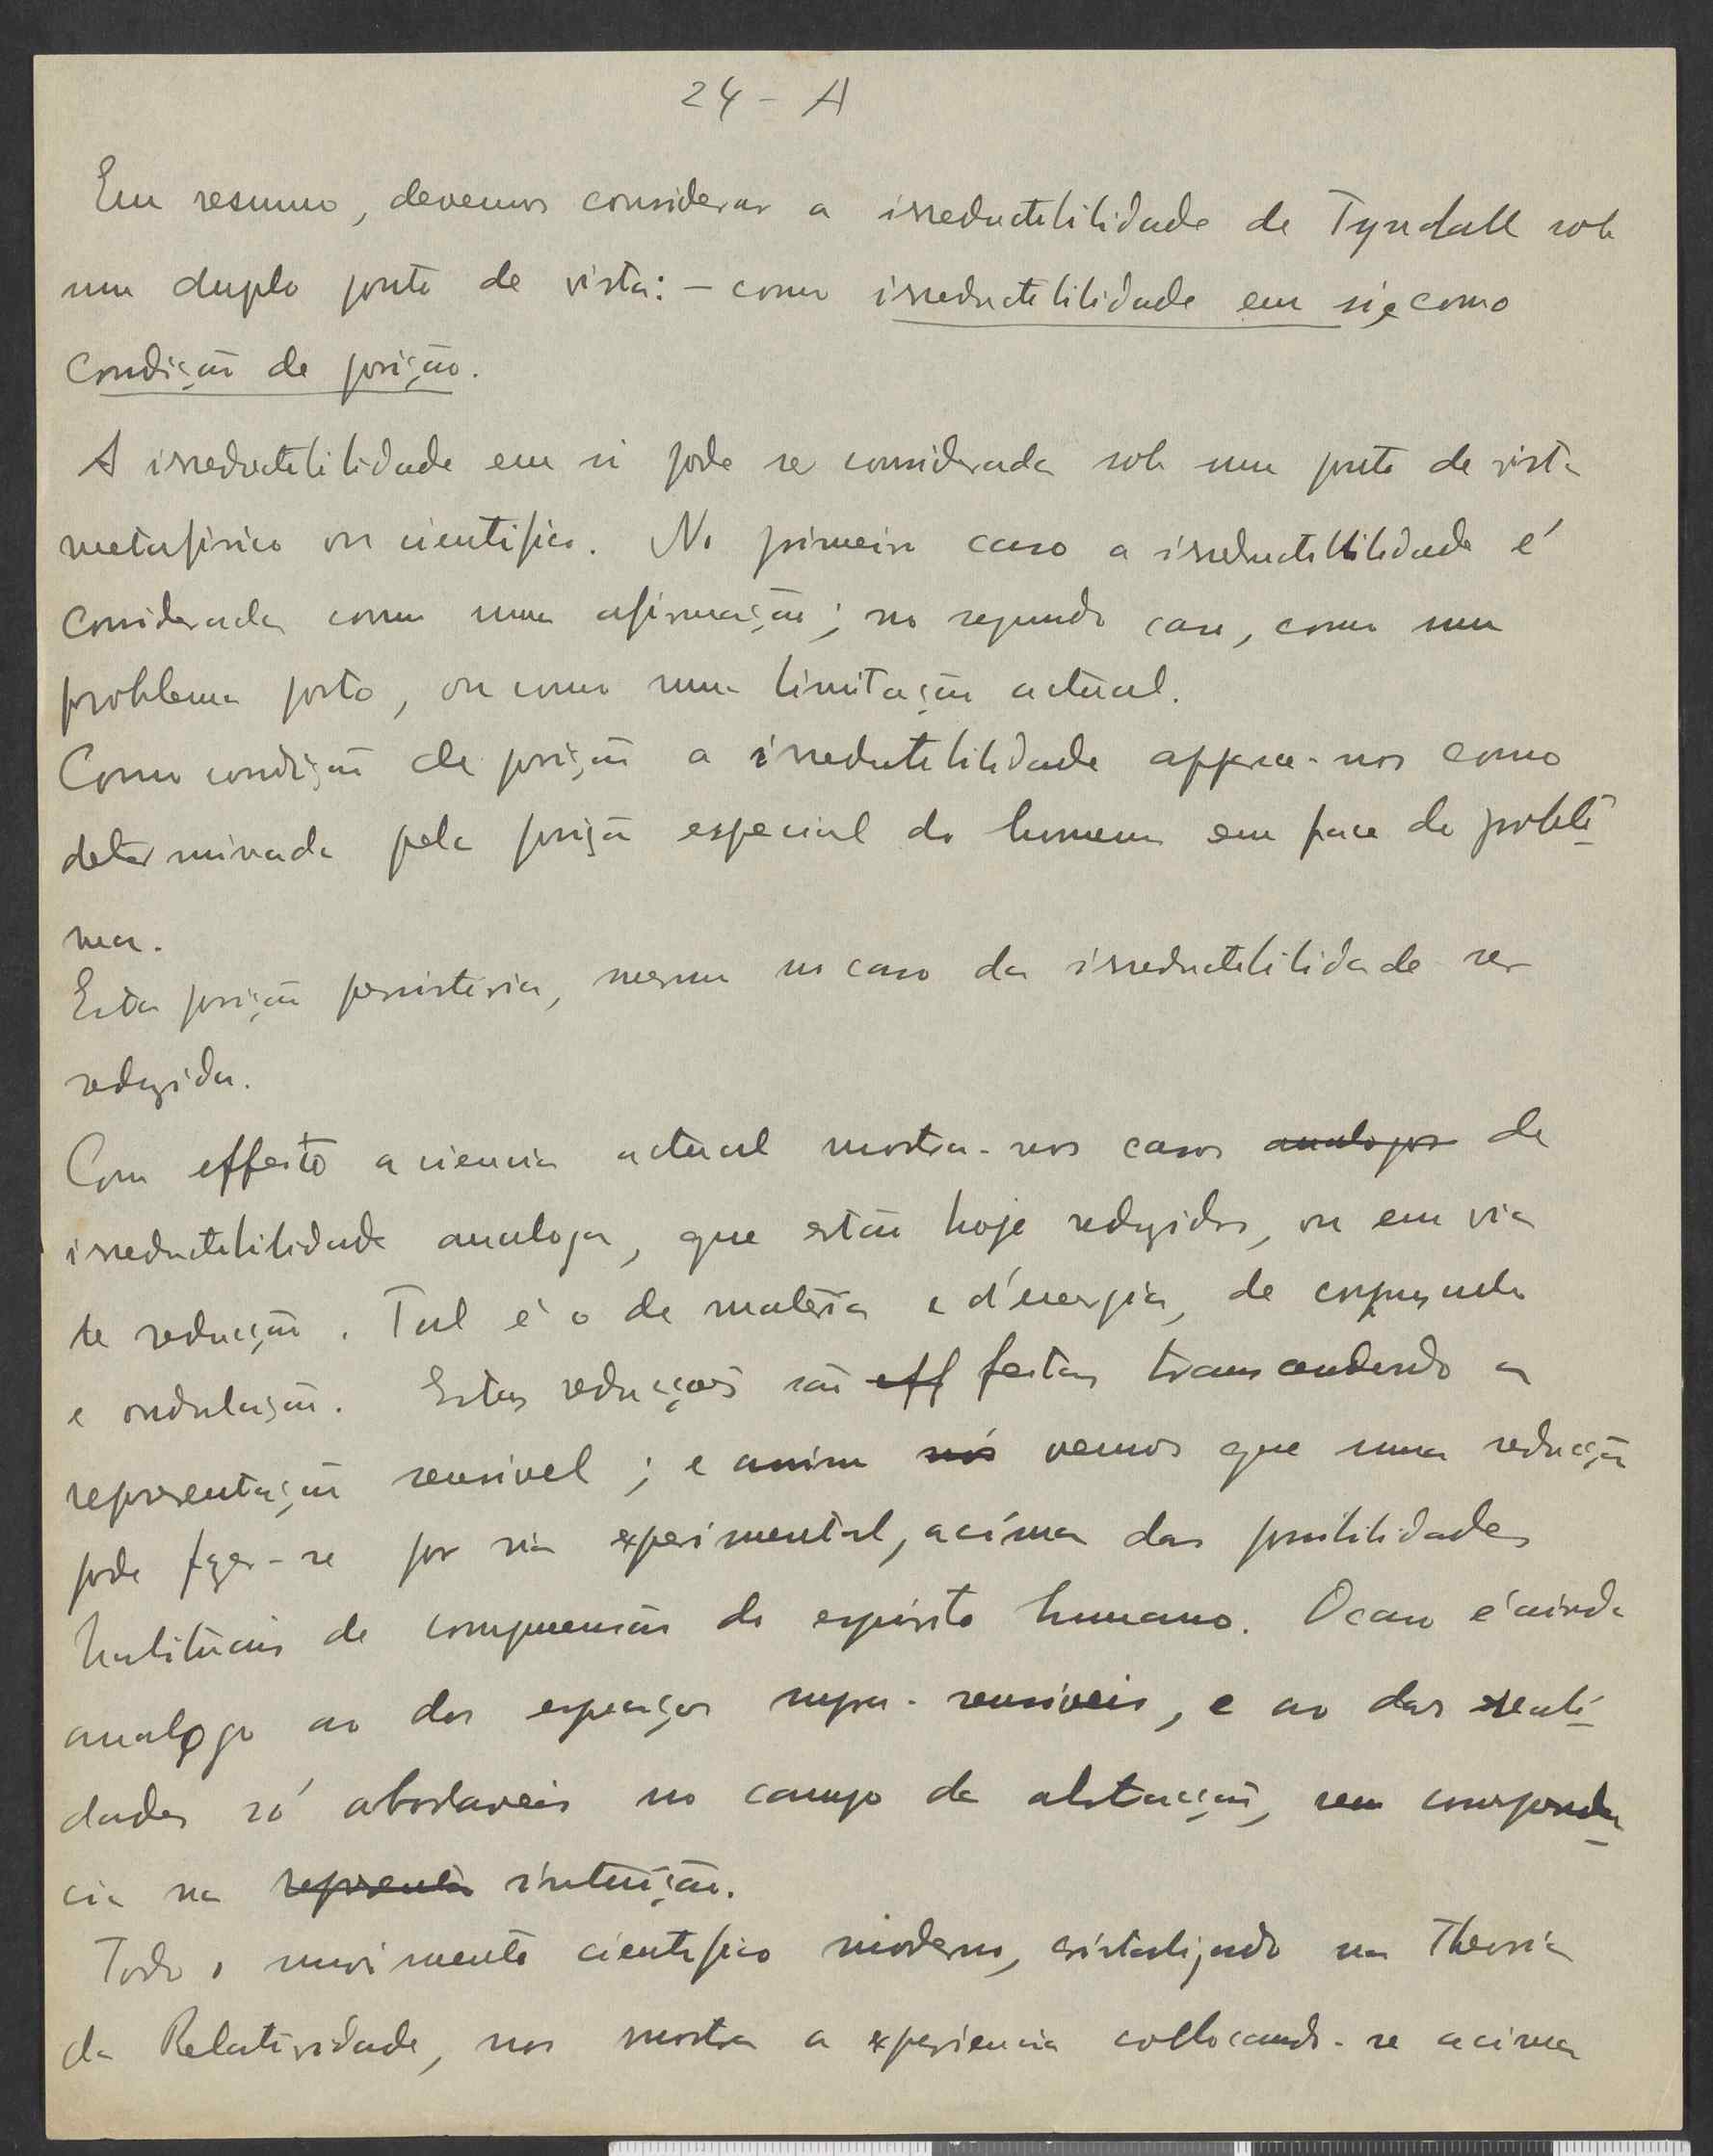 24 - A
Em resumo, devemos considerar a irreductibilidade de Tyndall sob
um duplo ponto de vista: – como irreductibilidade em si, e como
condição de posição.
A irreductibilidade em si pode ser considerada sob um ponto de vista
metafisico ou cientifico. No primeiro caso a irreductibilidade é
considerada como uma afirmação; no segundo caso, como um
problema posto, ou como uma limitação actual.
Como condição de posição a irreductibilidade apparece-nos como
determinada pela posição especial do homem em face do proble-
ma.
Esta posição persistiria, mesmo no caso da irreductibilidade ser
reduzida.
Com effeito a ciencia actual mostra-nos casos analogos de
irreductibilidade analoga, que estão hoje reduzidos, ou em via
de reducção. Tal é o de materia e d'energia, de corpusculo
e ondulação. Estas reducções são eff feitas transcendendo a
representação sensivel; e assim nós vemos que uma reducção
pode fazer-se por via experimental, acima das possibilidades
habituais de compreensão do espirito humano. O caso é ainda
analogo ao dos espaços supra-sensiveis, e ao das reali-
dades só abordaveis no campo da abstracção, sem corresponden-
cia na representa intuição.
Todo o movimento cientifico moderno, cristalizado na Theoria
da Relatividade, nos mostra a experiencia collocando-se acima